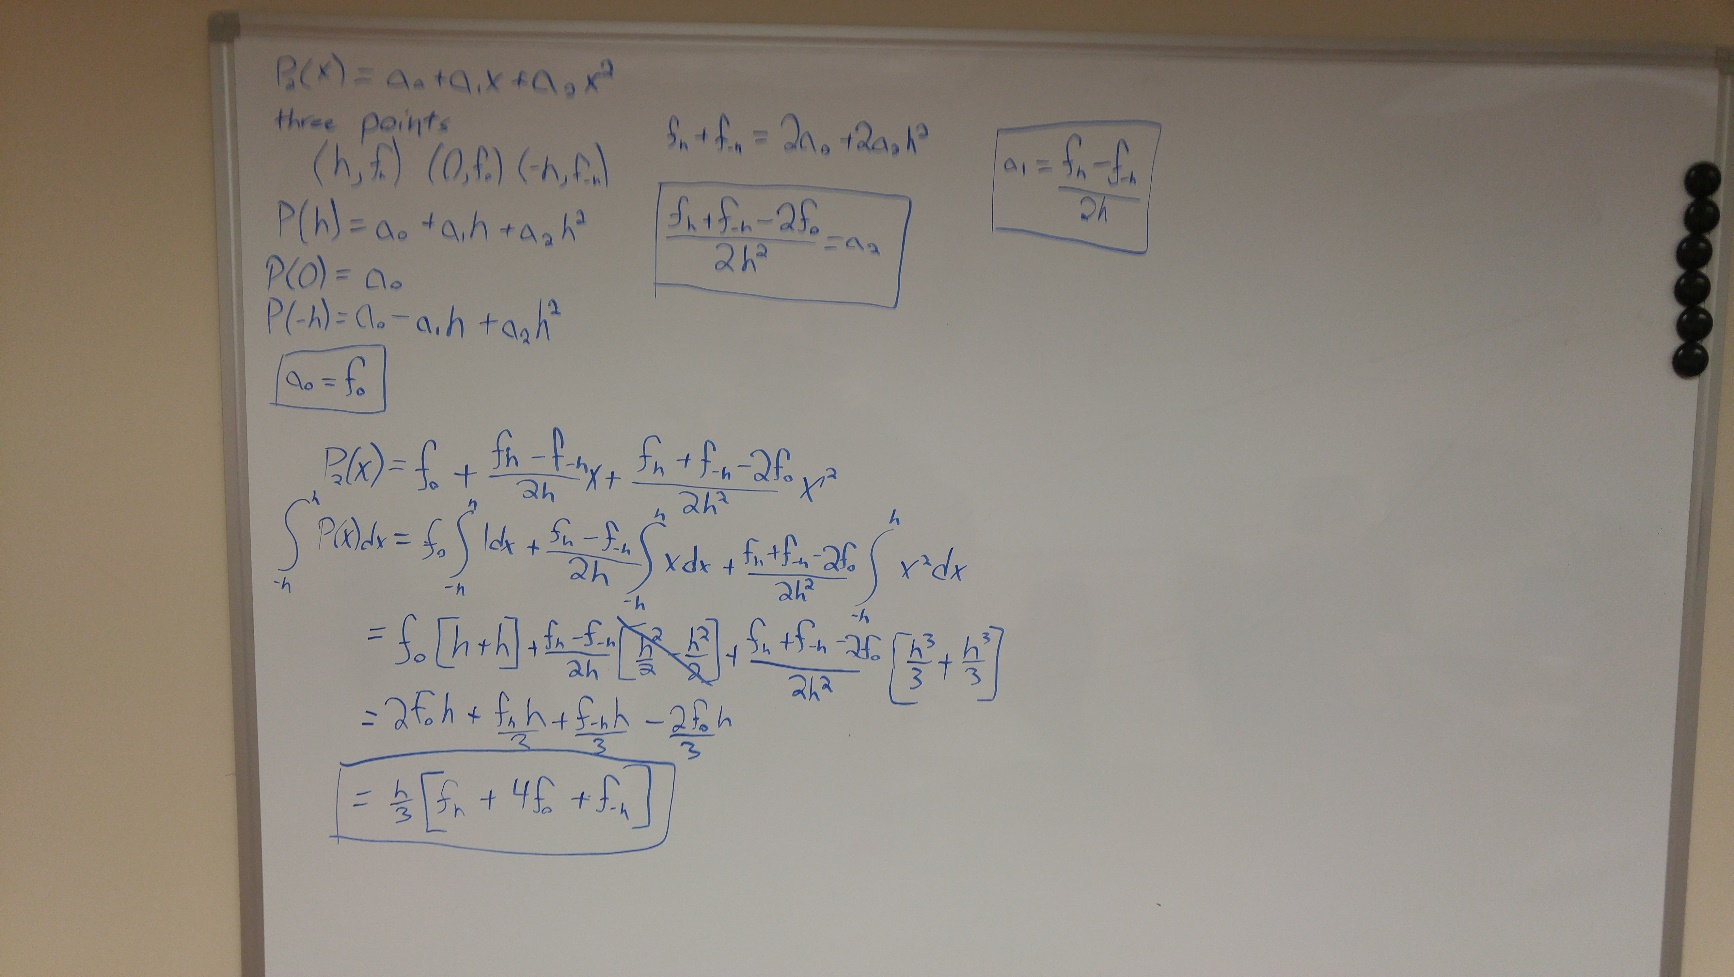 P₂(x) = a₀ + a₁x + a₂x²
three points
(h, fₕ) (0, f₀) (-h, f₋ₕ)
P(h) = a₀ + a₁h + a₂h²
P(0) = a₀
P(-h) = a₀ - a₁h + a₂h²
a₀ = f₀
fₕ + f₋ₕ = 2a₀ + 2a₂h²
(fₕ + f₋ₕ - 2f₀)/(2h²) = a₂
a₁ = (fₕ - f₋ₕ)/(2h)
P₂(x) = f₀ + (fₕ - f₋ₕ)/(2h) x + (fₕ + f₋ₕ - 2f₀)/(2h²) x²
∫₋ₕʰ P(x)dx = f₀ ∫₋ₕʰ 1dx + (fₕ - f₋ₕ)/(2h) ∫₋ₕʰ x dx + (fₕ + f₋ₕ - 2f₀)/(2h²) ∫₋ₕʰ x²dx
= f₀ [h + h] + (fₕ - f₋ₕ)/(2h) [h²/2 - h²/2] + (fₕ + f₋ₕ - 2f₀)/(2h²) [h³/3 + h³/3]
= 2f₀h + fₕh/3 + f₋ₕh/3 - 2f₀h/3
= h/3 [fₕ + 4f₀ + f₋ₕ]